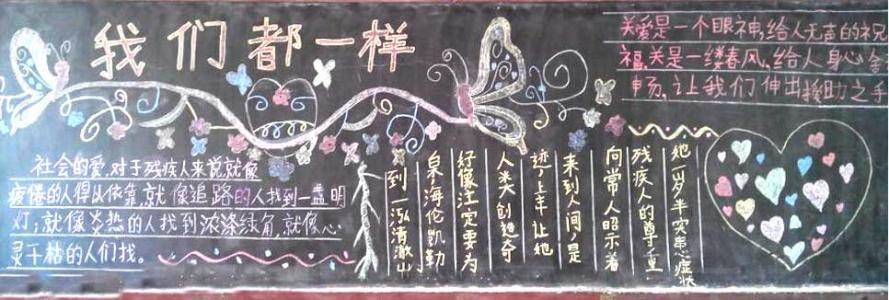 我们都一样
关爱是一个眼神,给人无声的祝
福,关是一缕春风,给人身心舍
畅,让我们伸出援助之手
社会的爱,对于残疾人来说,就像
疲倦的人得以依靠,就像追路的人找到一盏明
灯;就像炎热的人找到浓涤绿角,就像心
灵干枯的人们找。
到一泓清澈山
泉,海伦凯勒
好像注定要为
人类创造奇
迹,上半让她
来到人间,是
向常人昭示着
残疾人的尊
她一岁半突患症状